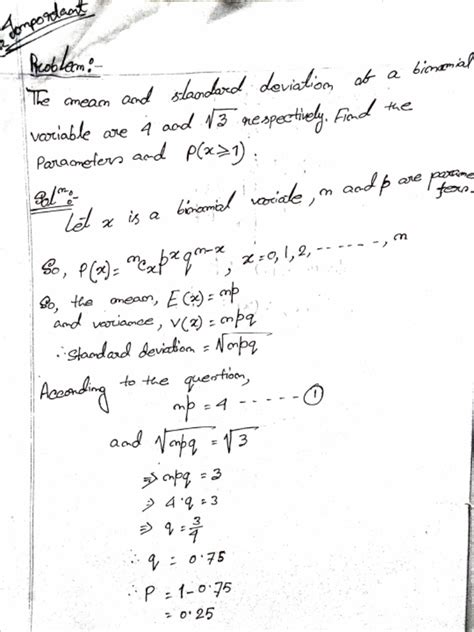 Important
Problem:-
The mean and standard deviation of a binomial
variable are 4 and √3 respectively. Find the
Parameters and P(x≥1).
Solⁿ:-
Let x is a binomial variate, n and p are parame
ters.
So, P(x) = ⁿCₓ pˣ qⁿ⁻ˣ, x = 0, 1, 2, ------, n
So, the mean, E(x) = np
and variance, V(x) = npq
∴ Standard deviation = √npq
According to the question,
np = 4 ----- ①
and √npq = √3
⇒ npq = 3
⇒ 4·q = 3
⇒ q = 3/4
∴ q = 0.75
∴ P = 1-0.75
= 0.25